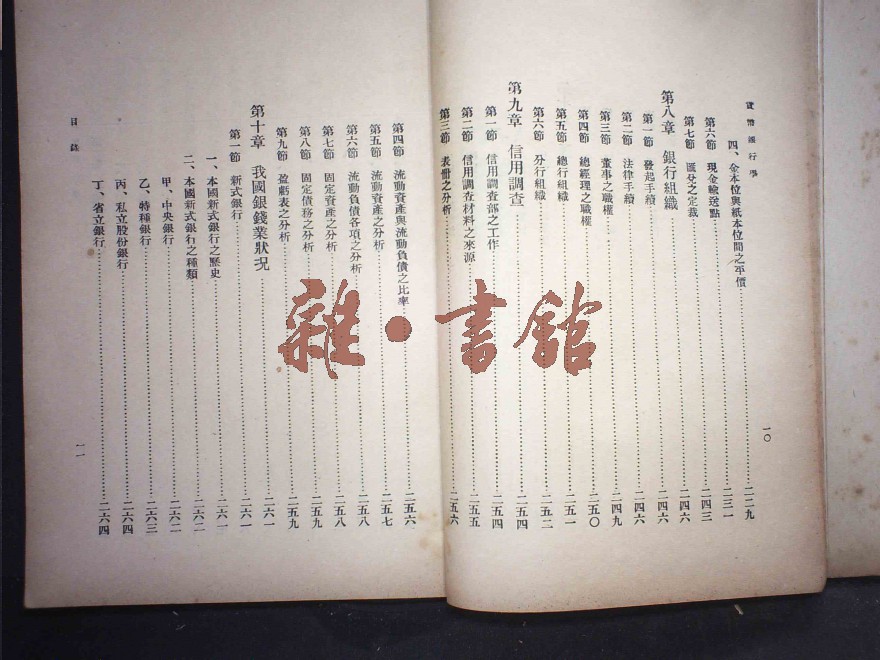 貨幣銀行學
四、金本位與紙本位間之平價……二二九
第六節 現金輸送點……二三一
第七節 匯兌之定裁……二四三
第八章 銀行組織……二四六
第一節 發起手續……二四六
第二節 法律手續……二四六
第三節 董事之職權……二四九
第四節 總經理之職權……二五〇
第五節 總行組織……二五一
第六節 分行組織……二五二
第九章 信用調查……二五四
第一節 信用調查部之工作……二五四
第二節 信用調查材料之來源……二五五
第三節 表冊之分析……二五六
一〇
第四節 流動資產與流動負債之比率……二五六
第五節 流動資產之分析……二五七
第六節 流動負債各項之分析……二五八
第七節 固定資產之分析……二五八
第八節 固定債務之分析……二五九
第九節 盈虧表之分析……二五九
第十章 我國銀錢業狀況……二六一
第一節 新式銀行……二六一
一、本國新式銀行之歷史……二六一
二、本國新式銀行之種類……二六二
甲、中央銀行……二六二
乙、特種銀行……二六三
丙、私立股份銀行……二六四
丁、省立銀行……二六四
目錄
一一
雜·書館